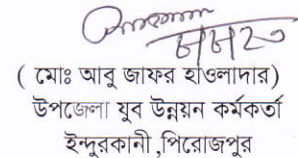 ( মোঃ আবু জাফর হাওলাদার)
উপজেলা যুব উন্নয়ন কর্মকর্তা
ইন্দুরকানী ,পিরোজপুর